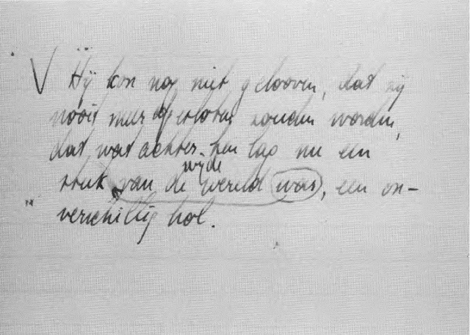 V Hij kon nog niet gelooven, dat zij
nooit meer afgesloten zouden worden,
dat wat achter hen lag nu een
stuk van de wijde wereld was, een on-
verschillig hol.